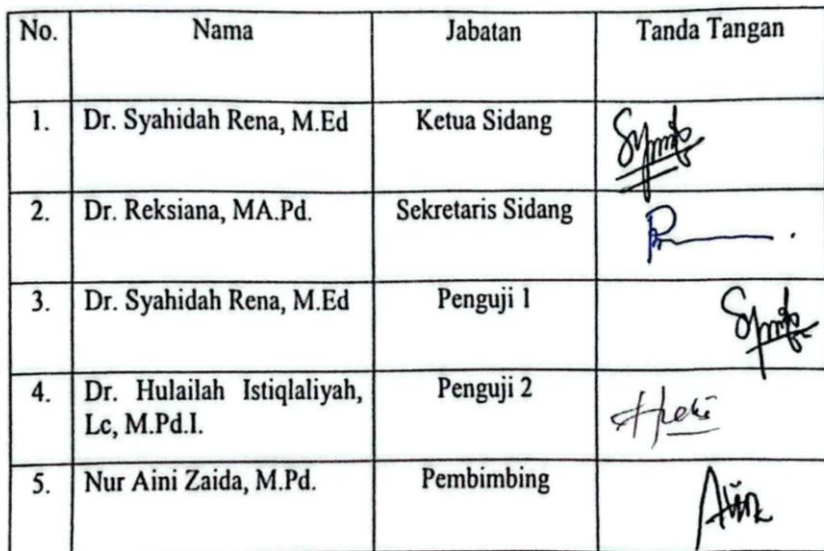 No. Nama Jabatan Tanda Tangan
1. Dr. Syahidah Rena, M.Ed Ketua Sidang
2. Dr. Reksiana, MA.Pd. Sekretaris Sidang
3. Dr. Syahidah Rena, M.Ed Penguji 1
4. Dr. Hulailah Istiqlaliyah, Penguji 2
Lc, M.Pd.I.
5. Nur Aini Zaida, M.Pd. Pembimbing